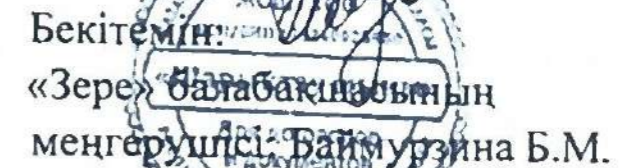 Бекітемін:
«Зере» балабақшасының
меңгерушісі: Баймурзина Б.М.